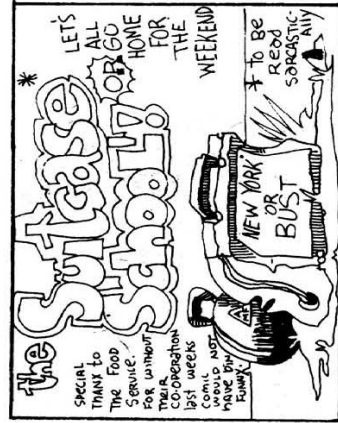 the
Suitcase
School!!
*
LET'S
ALL
GO
HOME
FOR
THE
WEEKEND
SPECIAL
THANX TO
THE FOOD
SERVICE.
FOR WITHOUT
THEIR
CO-OPERATION
last weeks
comic
WOULD NOT
HAVE BIN
FUNNY.
NEW YORK
OR
BUST
* TO BE
Read
SARCASTIC-
Ally